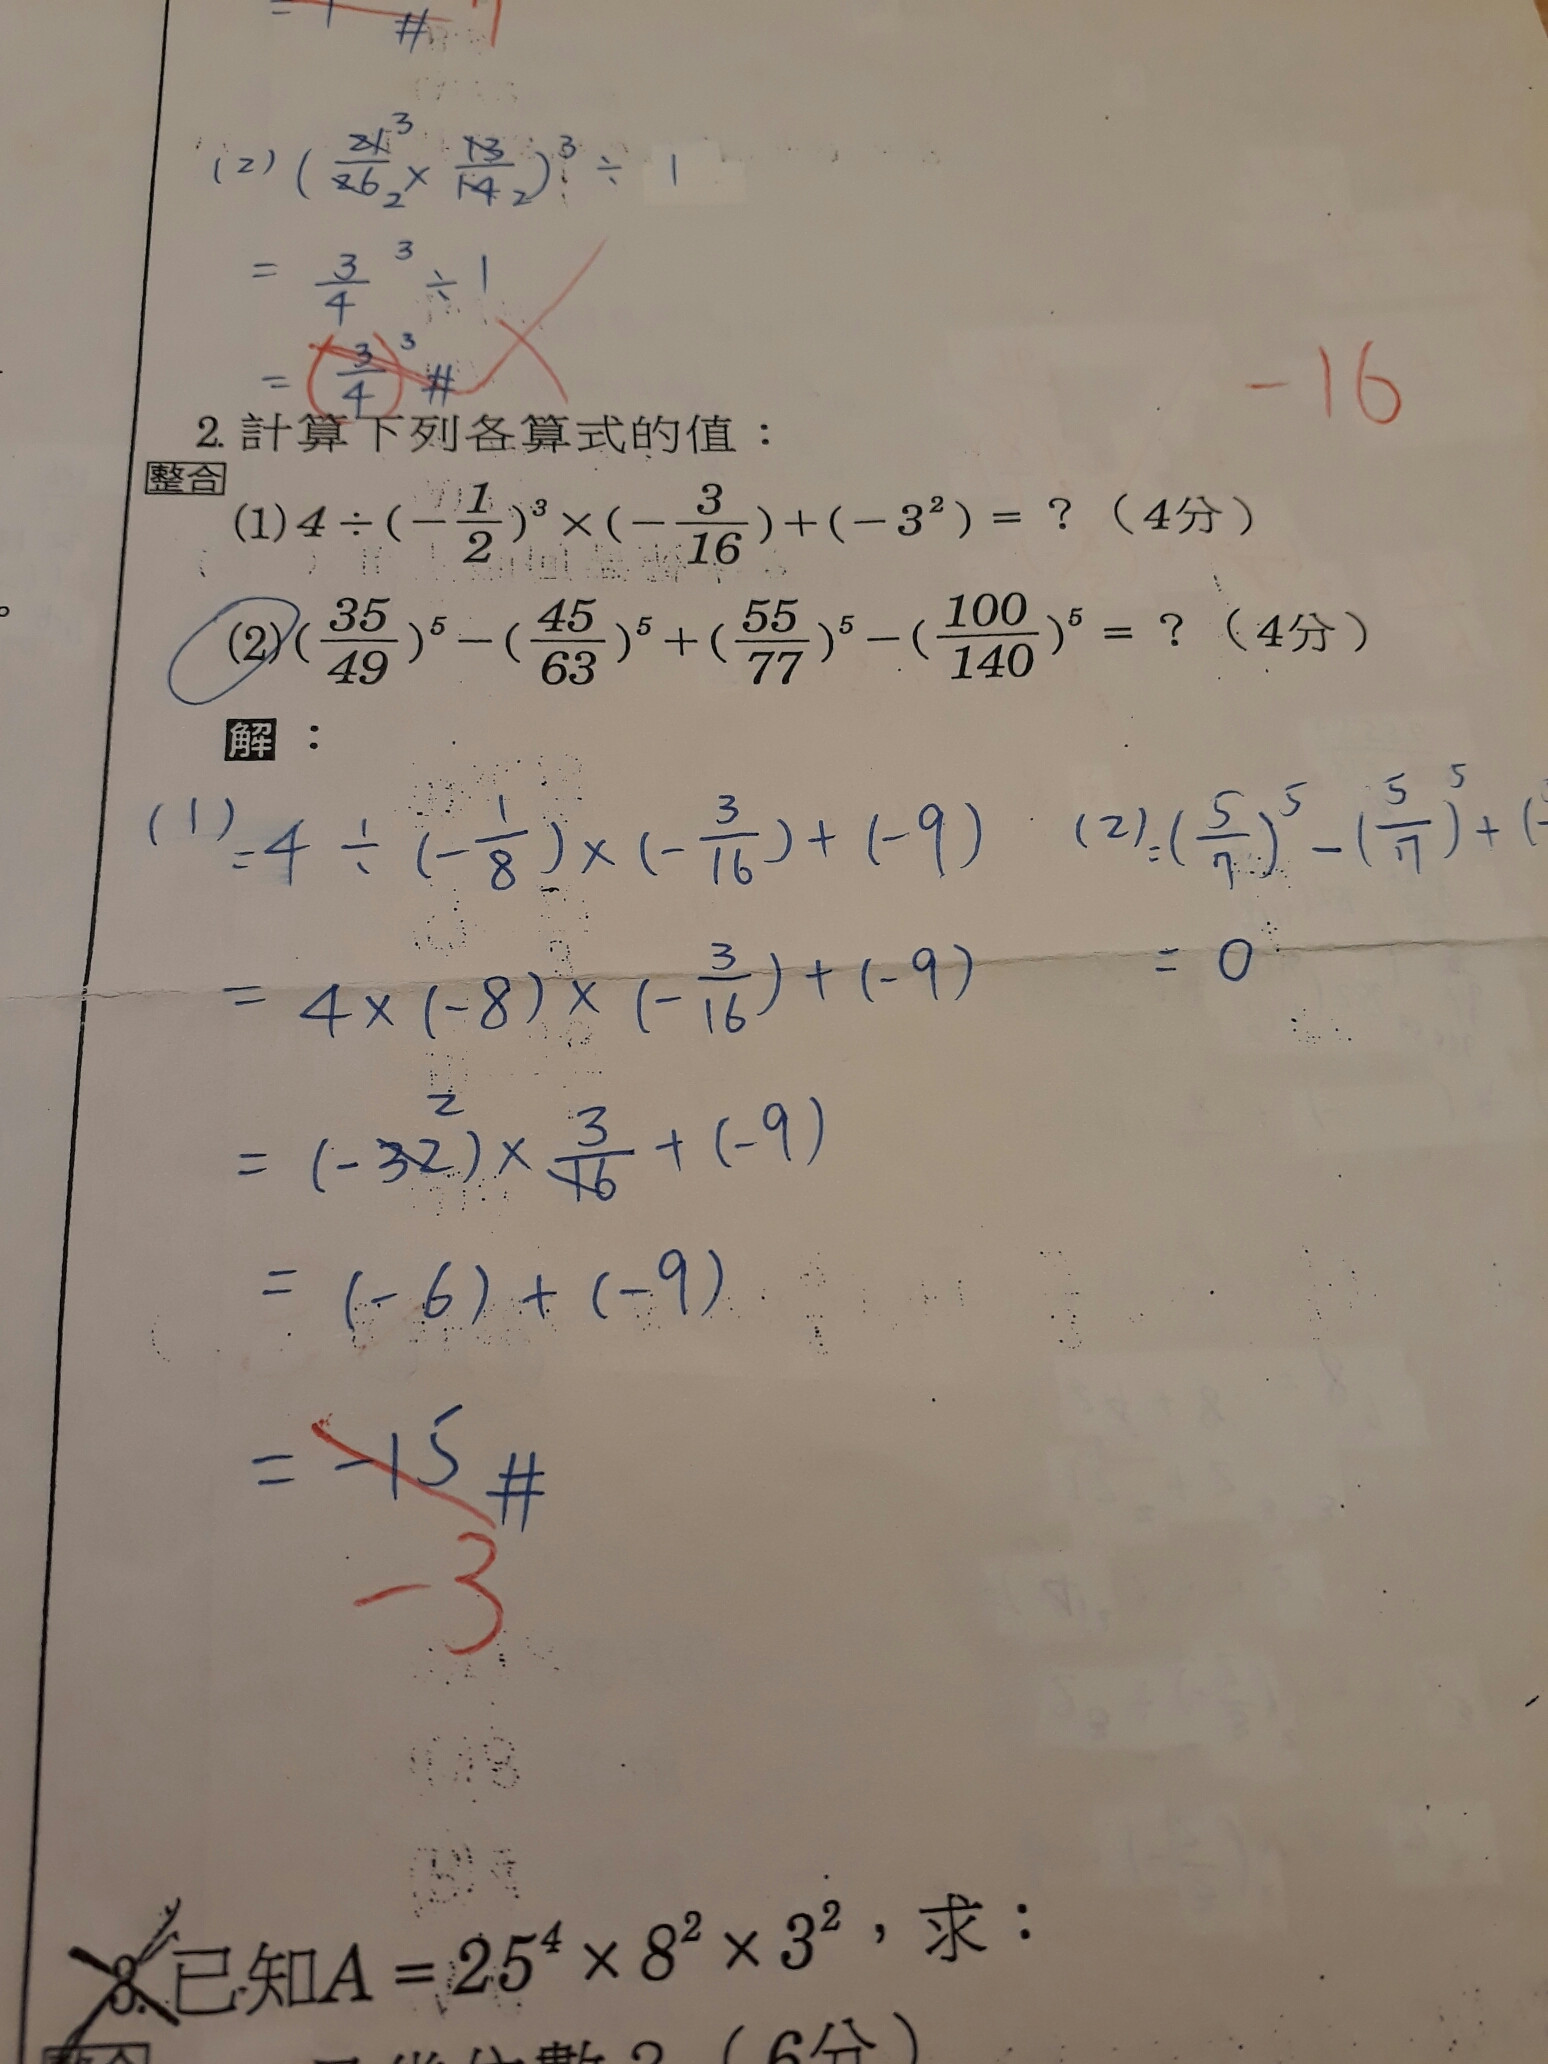 #
(2) (21/26 3 2 × 13/14 2)³ ÷ 1
= 3/4 ³ ÷ 1
= (3/4)³ #
-16
2. 計算下列各算式的值：
整合
(1) 4 ÷ (-1/2)³ × (-3/16) + (-3²) = ？（4分）
(2) (35/49)⁵ - (45/63)⁵ + (55/77)⁵ - (100/140)⁵ = ？（4分）
解：
(1) = 4 ÷ (-1/8) × (-3/16) + (-9)
= 4 × (-8) × (-3/16) + (-9)
= (-32 2) × 3/16 + (-9)
= (-6) + (-9)
= -15 #
-3
(2) = (5/7)⁵ - (5/7)⁵ + (
= 0
3. 已知A = 25⁴ × 8² × 3²，求：
整合
位數？（6分）